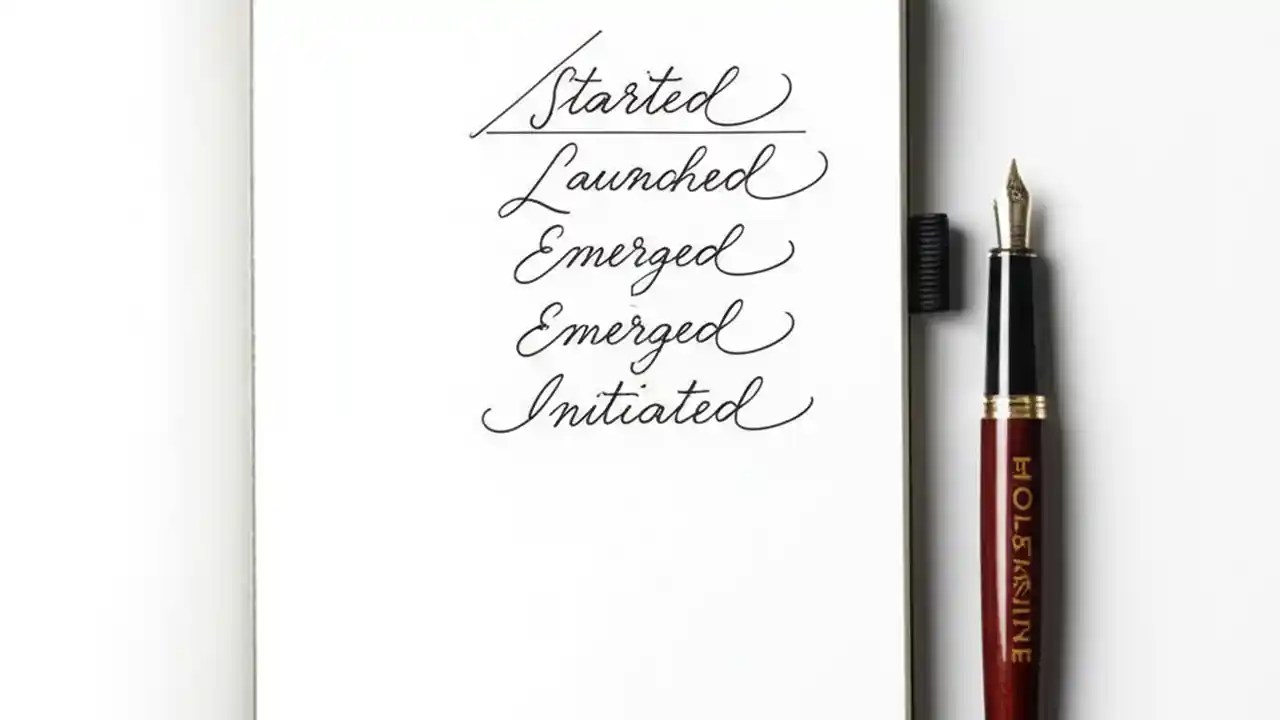 Started
Launched
Emerged
Emerged
Initiated